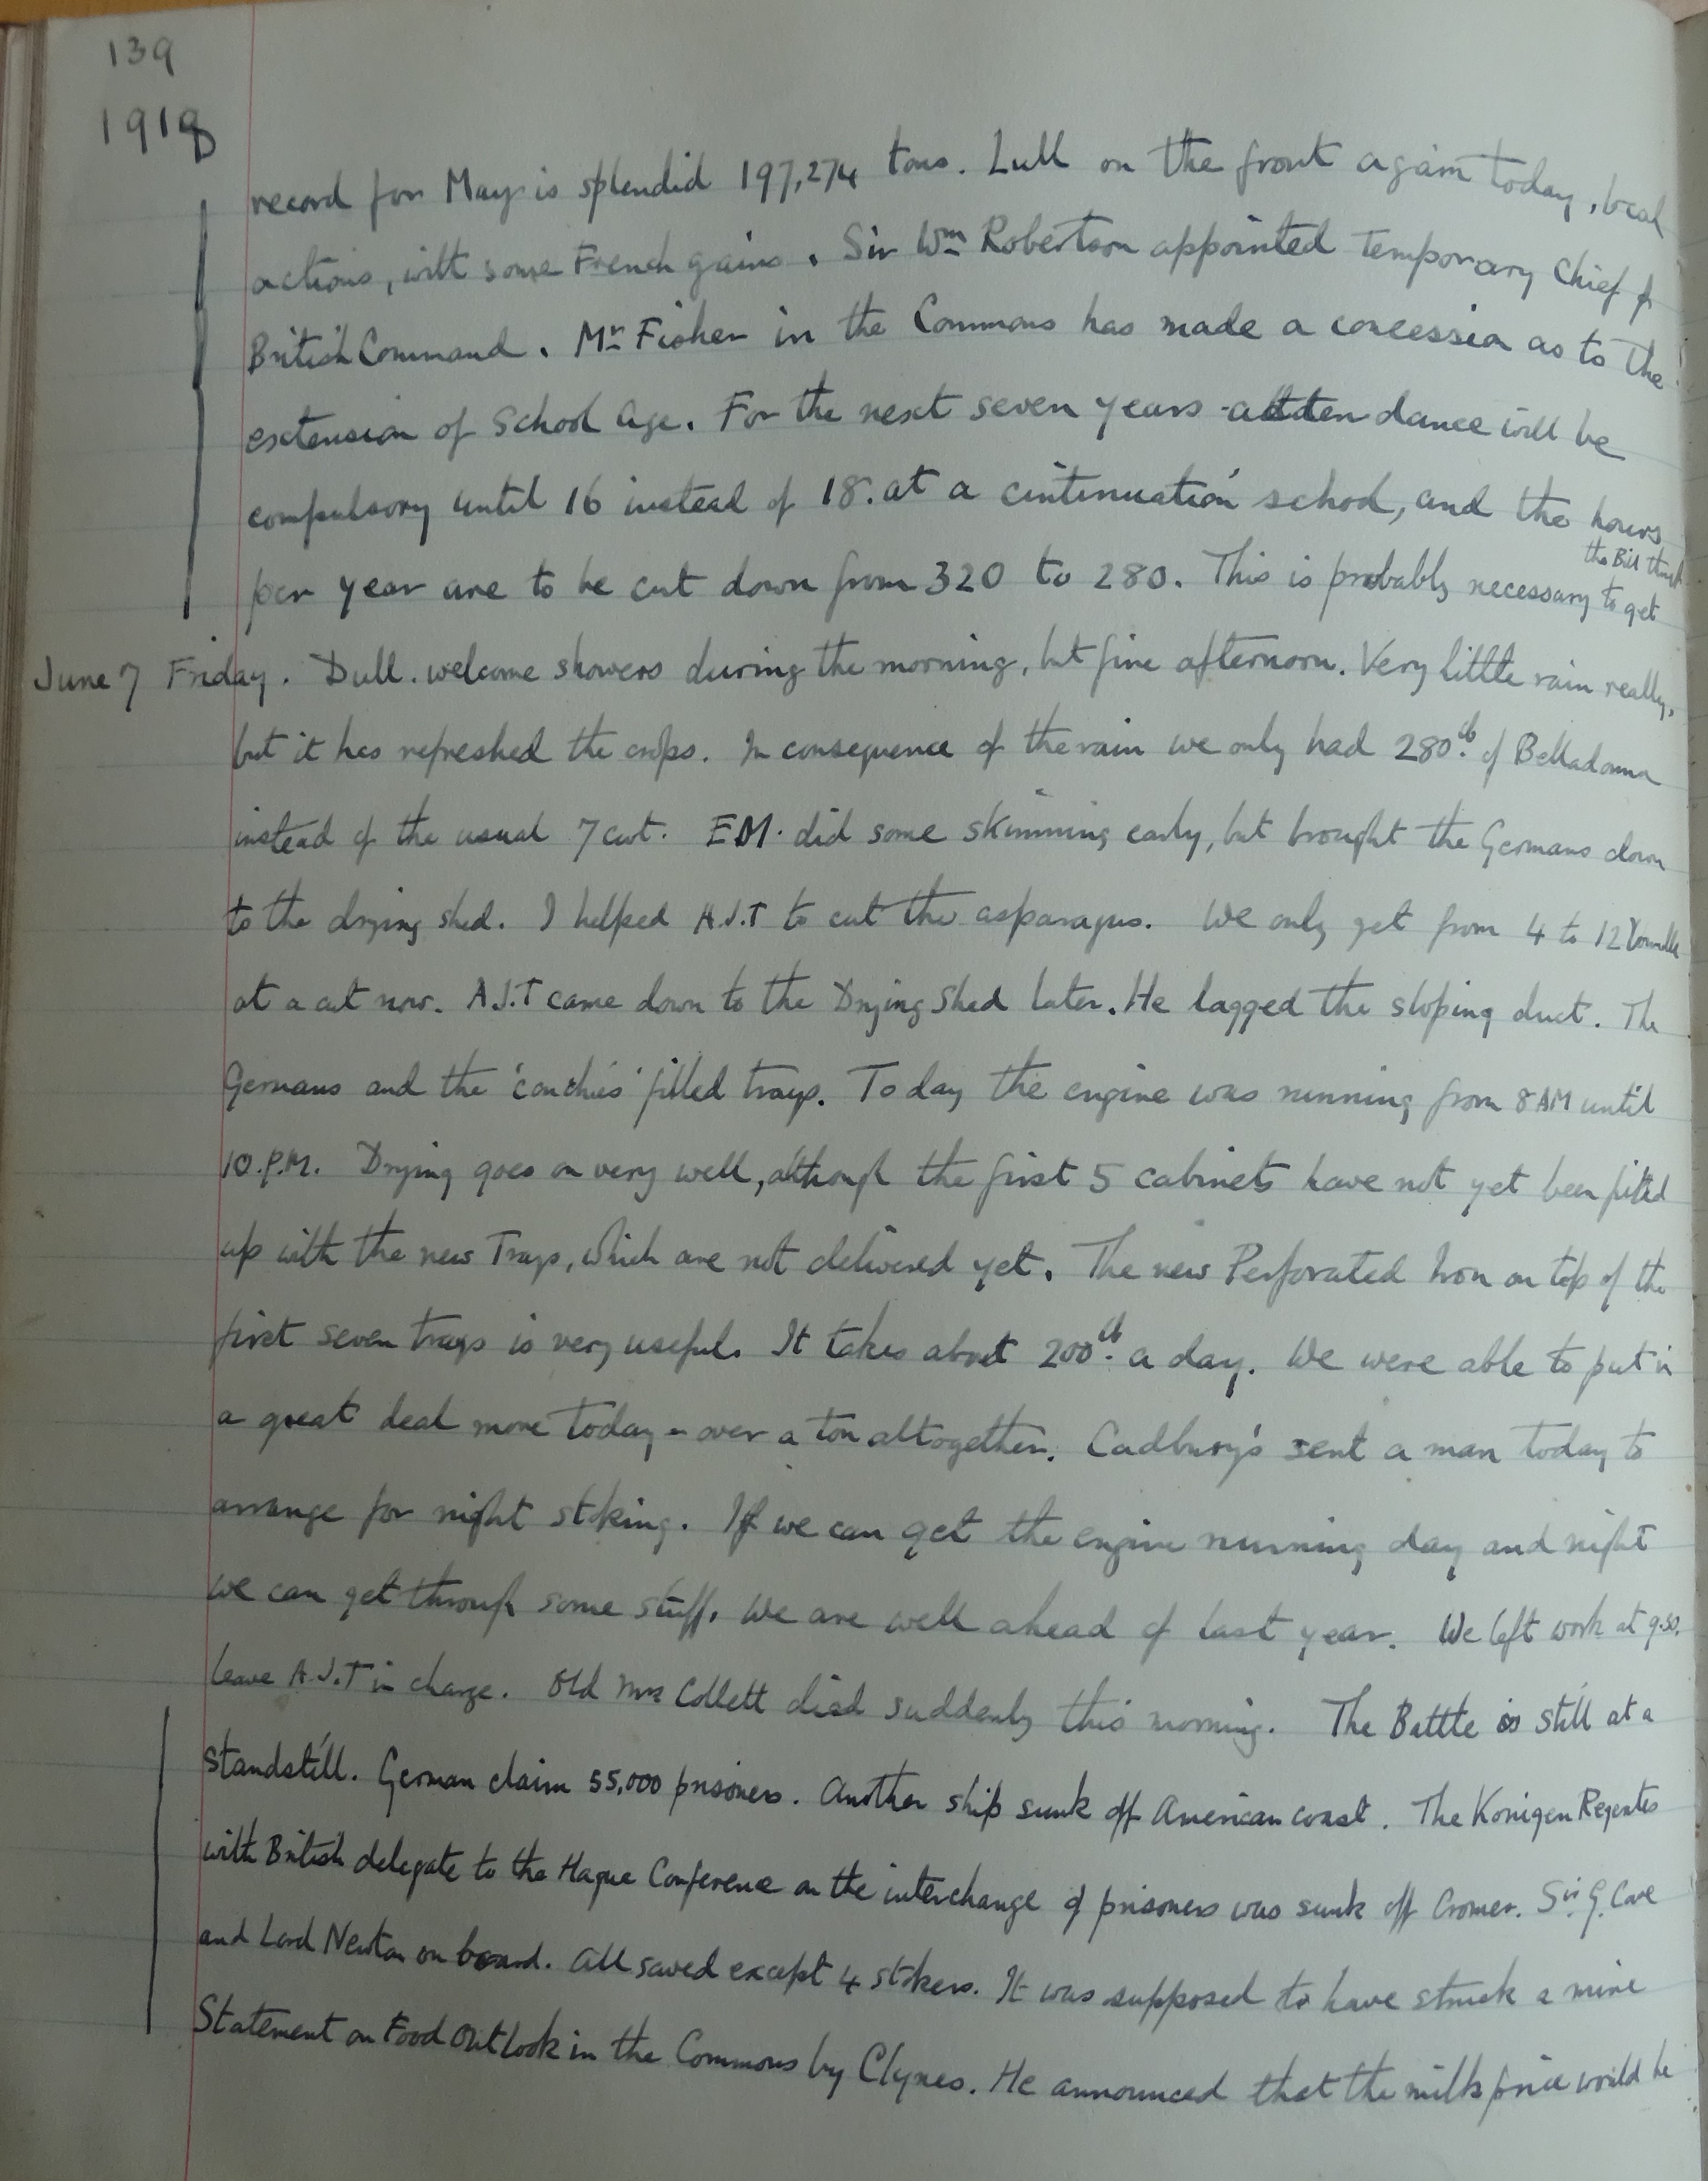 139
1918
record for May is splendid 197,274 tons. Lull on the front again today, local
actions, with some French gains. Sir Wm Robertson appointed temporary Chief of
British Command. Mr Fisher in the Commons has made a concession as to the
extension of School Age. For the next seven years attendance will be
compulsory until 16 instead of 18. at a cintinuation school, and the hours
per year are to be cut down from 320 to 280. This is probably necessary to get
the Bill through
June 7 Friday. Dull. welcome showers during the morning, but fine afternoon. Very little rain really,
but it has refreshed the crops. In consequence of the rain we only had 280lb. of Belladonna
instead of the usual 7 cwt. E.M. did some skimming early, but brought the Germans down
to the drying shed. I helped A.J.T to cut the asparagus. We only get from 4 to 12
at a cut now. A.J.T came down to the Drying Shed later. He lagged the sloping duct. The
Germans and the 'conchies' filled trays. Today the engine was running from 8 AM until
10.P.M. Drying goes on very well, although the first 5 cabinets have not yet been fitted
up with the new Trays, which are not delivered yet. The new Perforated Iron on top of the
first seven trays is very useful. It takes about 200lb. a day. We were able to put in
a great deal more today - over a ton altogether. Cadbury's sent a man today to
arrange for night stoking. If we can get the engine running day and night
we can get through some stuff. We are well ahead of last year. We left work at 9.30.
leave A.J.T in charge. Old Mrs Collett died suddenly this morning. The Battle is still at a
standstill. German claim 55,000 prisoners. Another ship sunk off American coast. The Konigen Regentes
with British delegate to the Hague Conference on the interchange of prisoners was sunk off Cromer. Sir. G. Cave
and Lord Newton on board. All saved except 4 stokers. It was supposed to have struck a mine
Statement on Food Outlook in the Commons by Clynes. He announced that the milk price would be